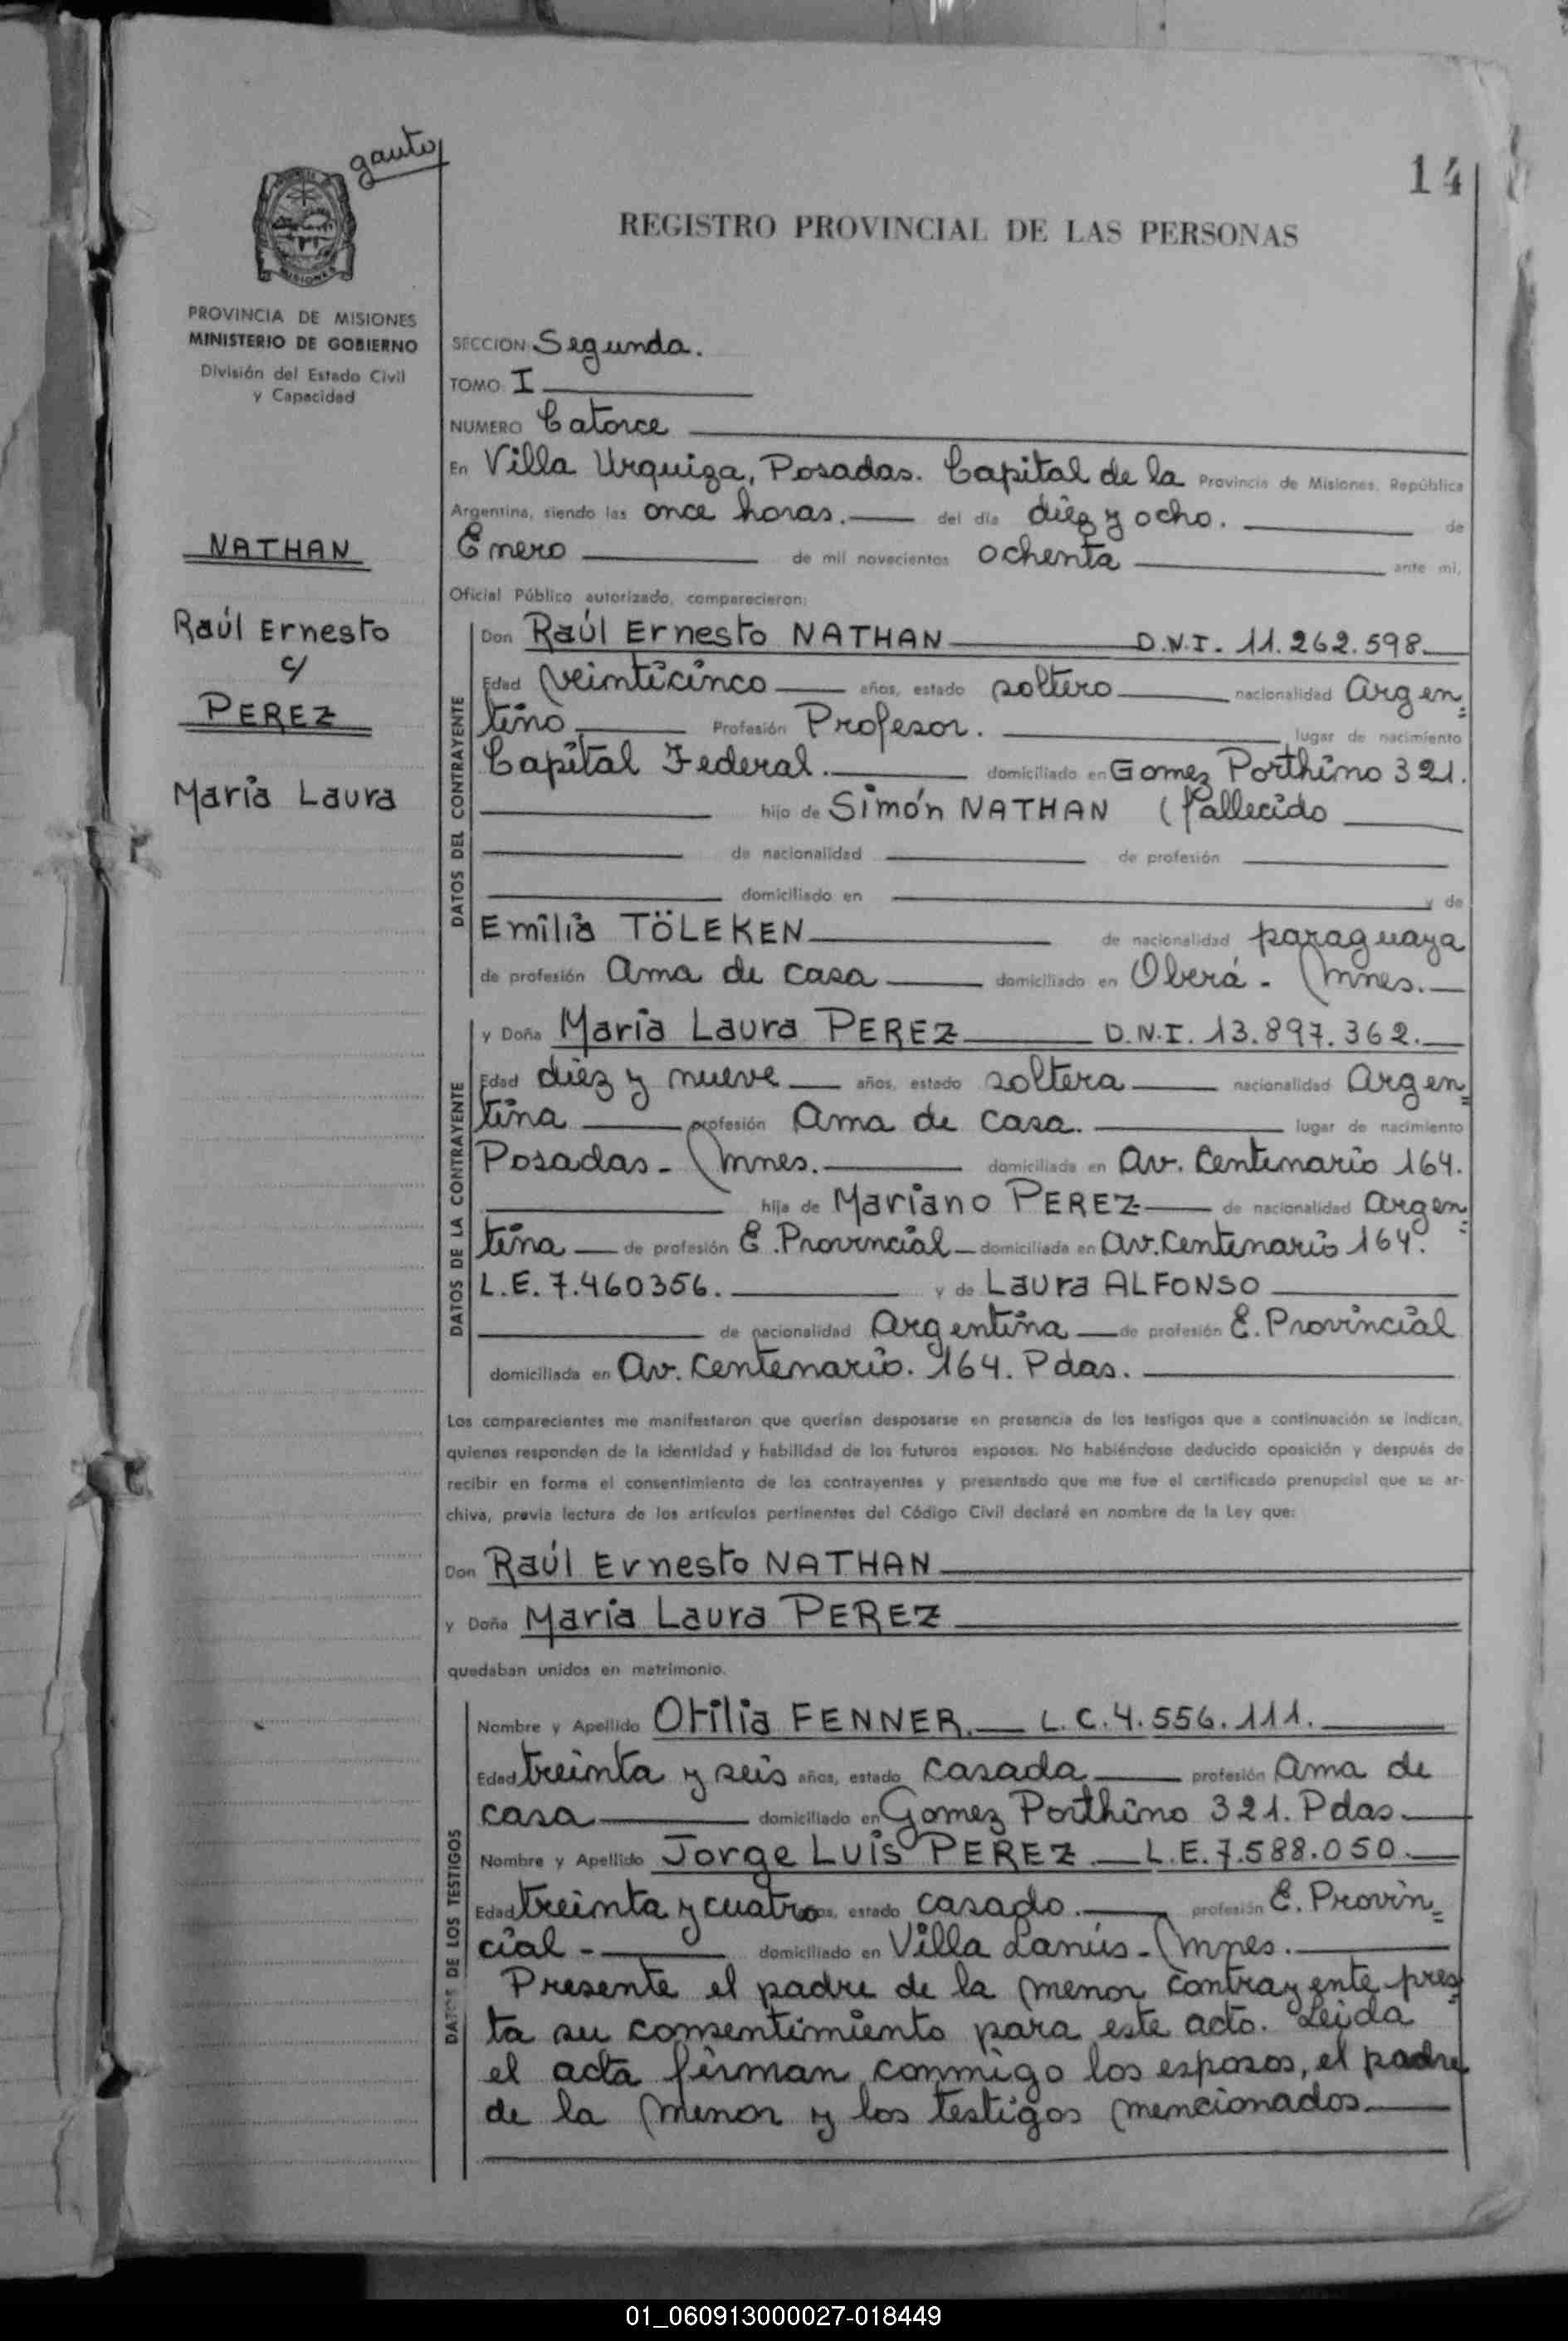 gauto
14
REGISTRO PROVINCIAL DE LAS PERSONAS
MISIONES
PROVINCIA DE MISIONES
MINISTERIO DE GOBIERNO
División del Estado Civil
y Capacidad
NATHAN
Raúl Ernesto
c/
PEREZ
María Laura
SECCION Segunda.
TOMO I
NUMERO Catorce
En Villa Urquiza, Posadas. Capital de la Provincia de Misiones, República
Argentina, siendo las once horas. del día diez y ocho. de
Enero de mil novecientos ochenta ante mí,
Oficial Público autorizado, comparecieron:
DATOS DEL CONTRAYENTE
Don Raúl Ernesto NATHAN D.N.I. 11.262.598.
Edad veinticinco años, estado soltero nacionalidad Argen=
tino Profesión Profesor. lugar de nacimiento
Capital Federal. domiciliado en Gomez Porthino 321.
hijo de Simón NATHAN (fallecido
de nacionalidad de profesión
domiciliado en y de
Emilia TÖLEKEN de nacionalidad paraguaya
de profesión Ama de casa domiciliado en Oberá - Mnes.
DATOS DE LA CONTRAYENTE
y Doña María Laura PEREZ D.N.I. 13.897.362.
Edad diez y nueve años, estado soltera nacionalidad Argen=
tina profesión Ama de casa. lugar de nacimiento
Posadas - Mnes. domiciliada en Av. Centenario 164.
hija de Mariano PEREZ de nacionalidad Argen=
tina de profesión E. Provincial domiciliada en Av. Centenario 164.
L.E. 7.460356. y de Laura ALFONSO
de nacionalidad Argentina de profesión E. Provincial
domiciliada en Av. Centenario. 164. Pdas.
Los comparecientes me manifestaron que querían desposarse en presencia de los testigos que a continuación se indican,
quienes responden de la identidad y habilidad de los futuros esposos. No habiéndose deducido oposición y después de
recibir en forma el consentimiento de los contrayentes y presentado que me fue el certificado prenupcial que se ar-
chiva, previa lectura de los artículos pertinentes del Código Civil declaré en nombre de la Ley que:
Don Raúl Ernesto NATHAN
y Doña María Laura PEREZ
quedaban unidos en matrimonio.
DATOS DE LOS TESTIGOS
Nombre y Apellido Otilia FENNER. L.C. 4.556.111.
Edad treinta y seis años, estado casada profesión Ama de
casa domiciliado en Gomez Porthino 321. Pdas.
Nombre y Apellido Jorge Luis PEREZ. L.E. 7.588.050.
Edad treinta y cuatro años, estado casado. profesión E. Provin=
cial - domiciliado en Villa Lanús - Mnes.
Presente el padre de la menor contrayente pres
ta su consentimiento para este acto. Leída
el acta firman conmigo los esposos, el padre
de la menor y los testigos mencionados.
01_060913000027-018449